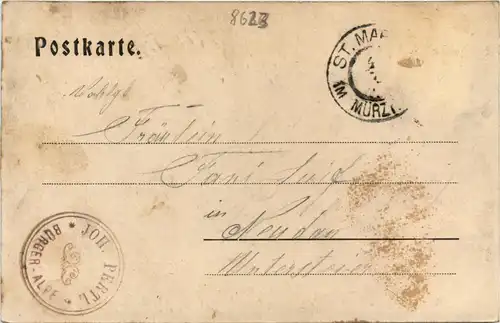 8623
Postkarte.
ST. MAR
IM MÜRZT
Wohlgb
Fräulein
Fani
in
Neudau
Untersteier
JOH. PERTL
* BÜRGER-ALPE *